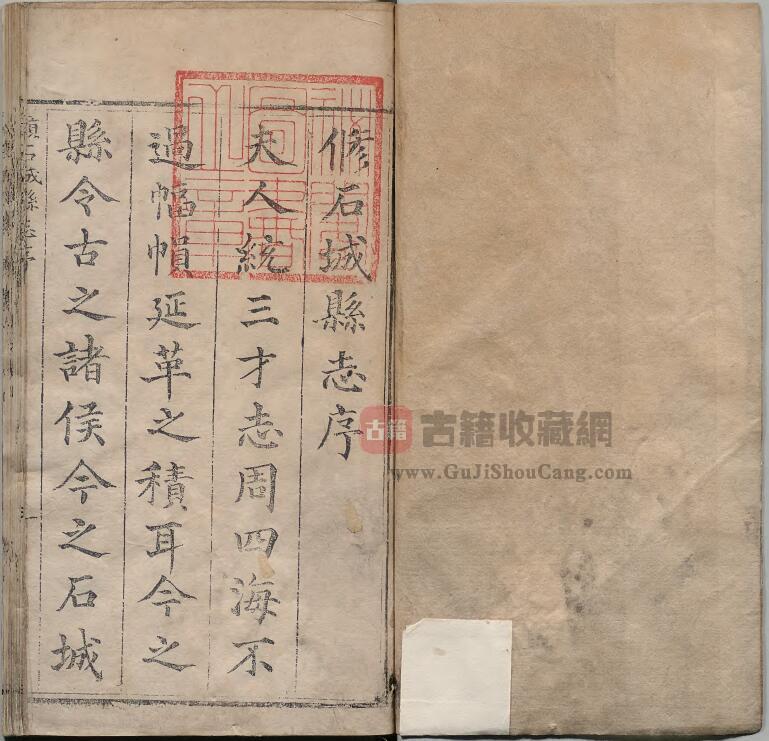 脩石城縣志序
夫人統三才志周四海不
過幅幁延革之積耳今之
縣令古之諸侯今之石城
石城縣志序
古籍
古籍收藏網
www.GuJiShouCang.com